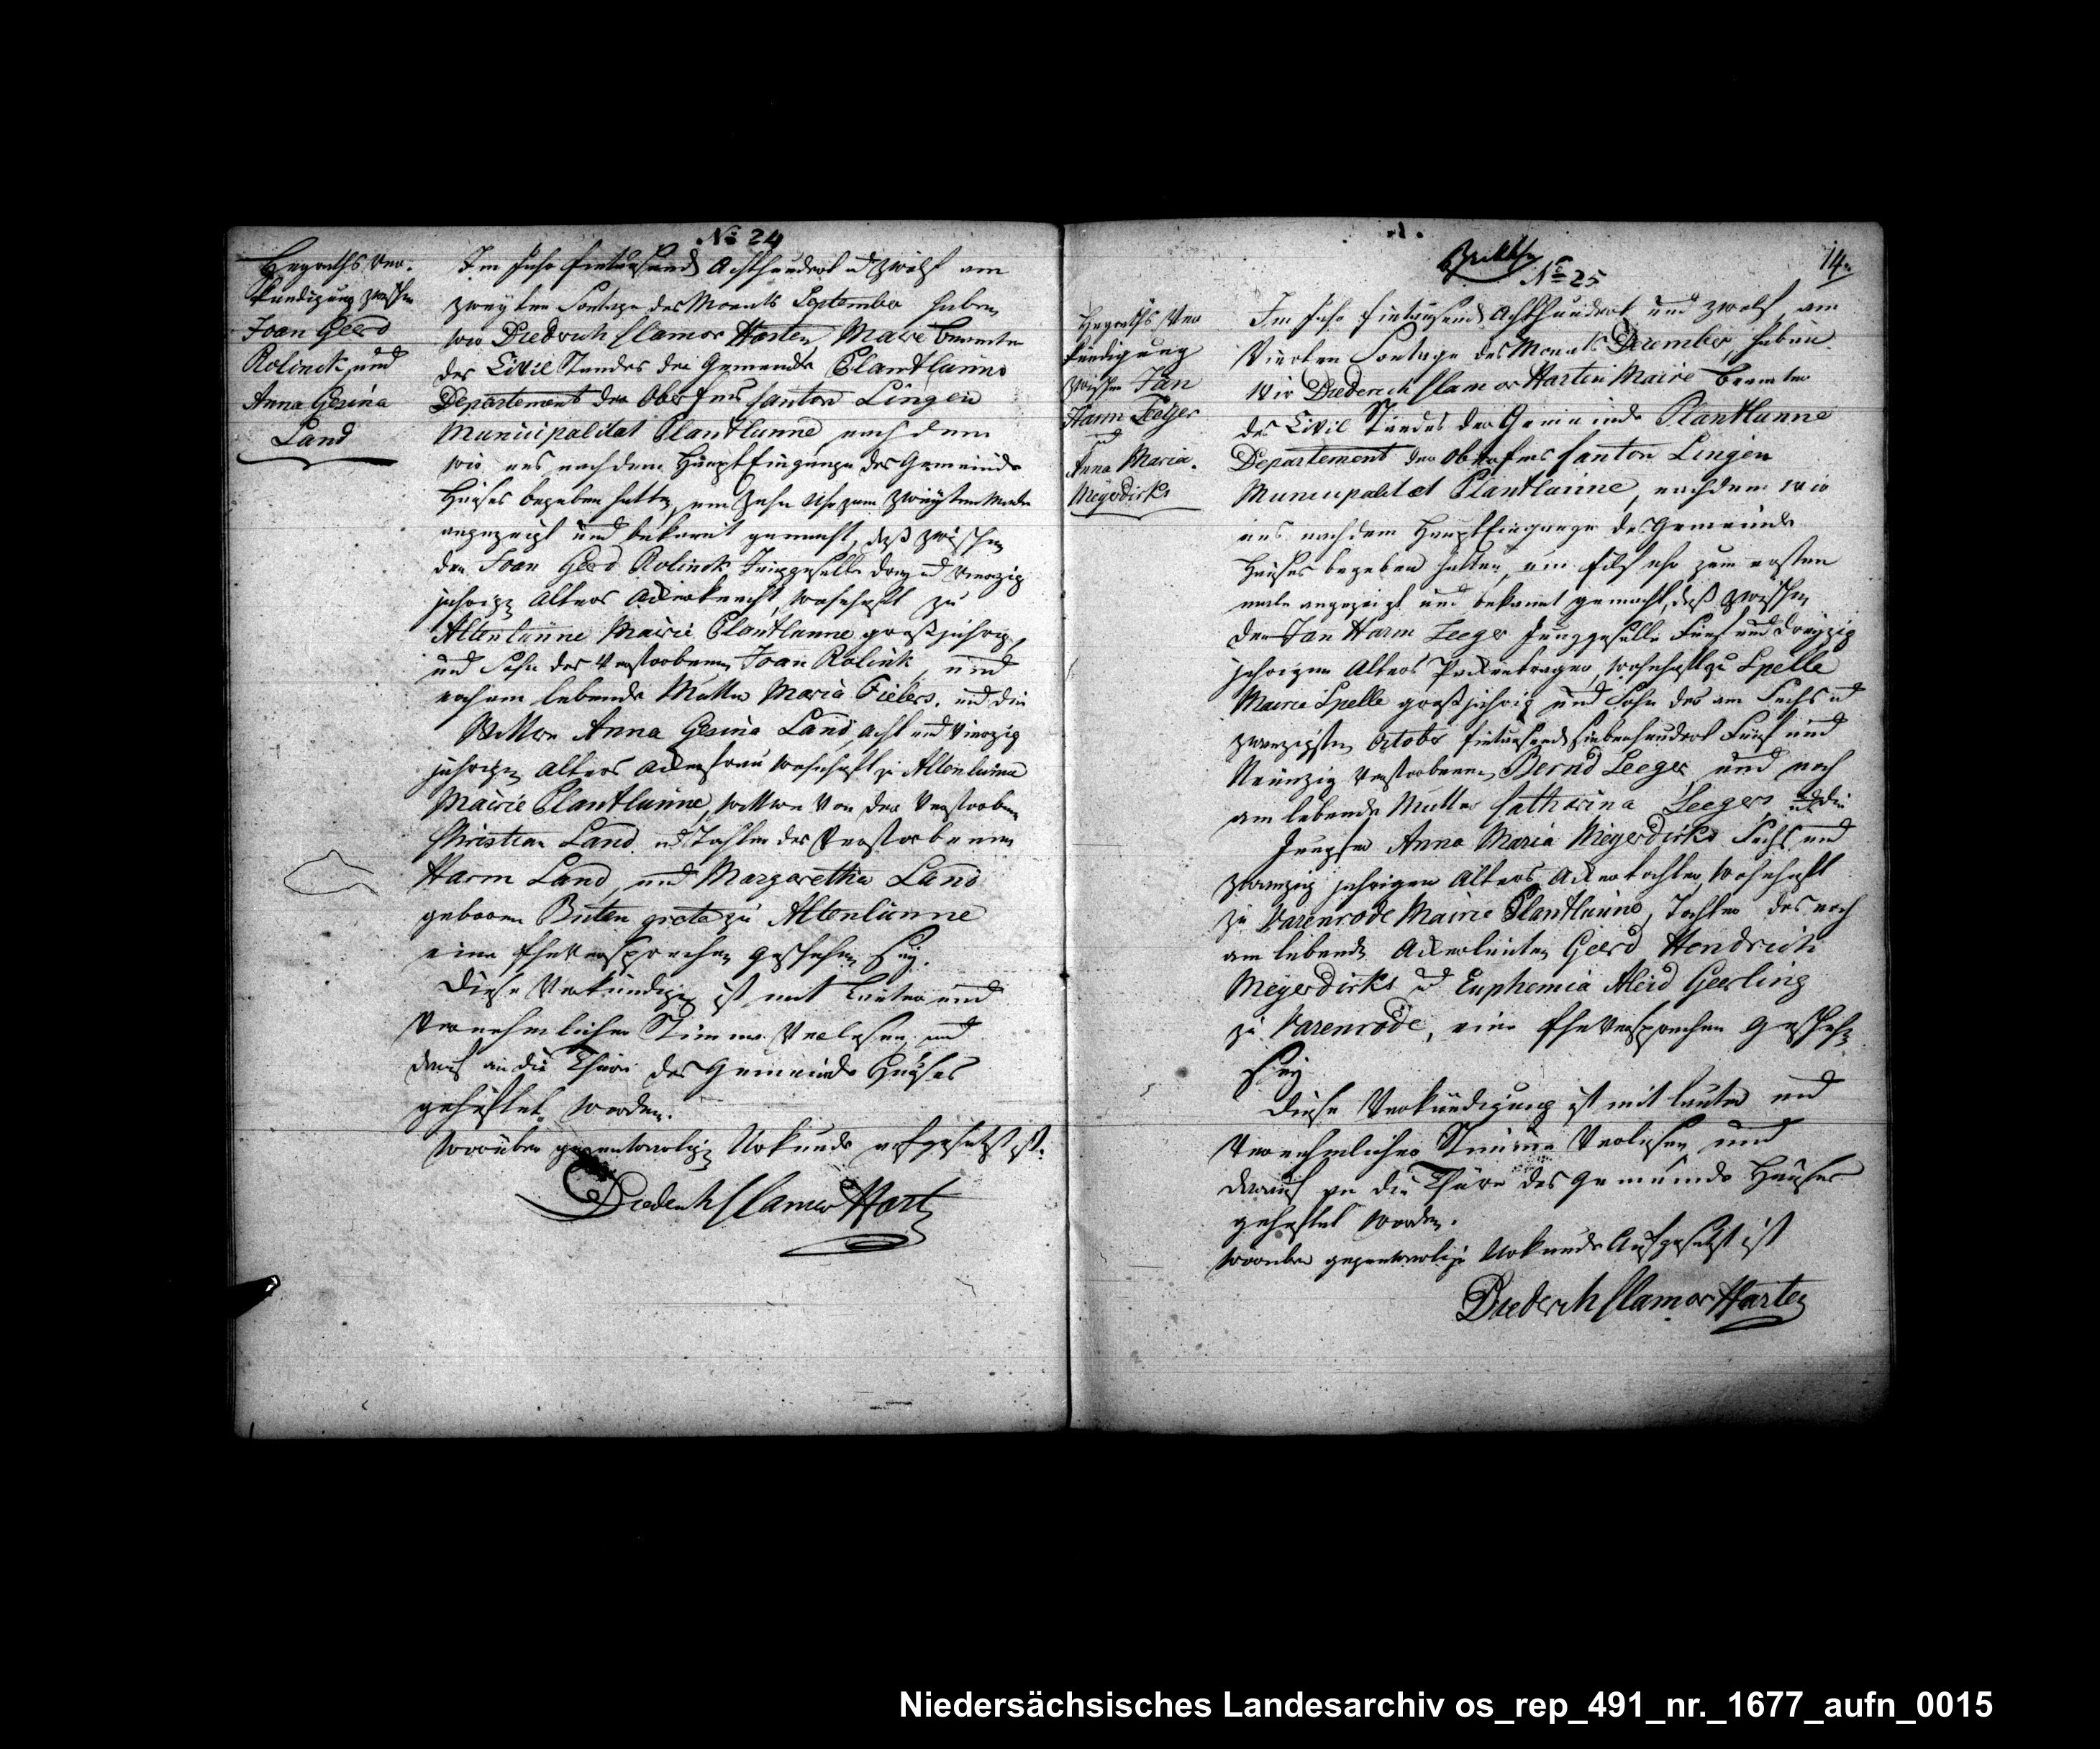 No 24
Heyraths Ver-
kündigung zwischen
Joan Geerd
Rolinck und
Anna Gesina
Land
Im Jahr Eintausend Achthundert ud zwölf am
zweyten Sontage des Monats September haben
wir Diedrich Clamor Harten Maire Beamte
des Civil Standes der Gemeinde Plantlünne
Departement der Ober Ems Canton Lingen
Municipalitat Plantlünne nachdem
wir uns nach dem Haupt Eingange des Gemeinde
Hauses begeben hatten, um zehn Uhr zum zweyten Male
angezeigt und bekannt gemacht, daß zwischen
den Joan Geerd Rolinck Junggeselle drey ud vierzig
jährigen Alters Ackerknecht, wohnhaft zu
Altenlünne Mairie Plantlunne großjährig,
und Sohn des Verstorbenen Joan Rolink, und
noch am lebende Mutter Maria Fielers, und die
Wittwe Anna Gesina Land, acht und vierzig
jährigen Alters Ackersfrau wohnhaft zu Altenlünne
Mairie Plantlünne, Wittwe von den Verstorbenen
Christian Land ud Tochter des Verstorbenen
Harm Land, und Margaretha Land
geboren Buten grete zu Altenlünne
eine Eheversprechen geschehen sey.
Diese Verkündigung ist mit lauter und
vernehmlicher Stimme verlesen, und
darauf an die Thüre des Gemeinde Hauses
geheftet worden.
Worüber gegenwärtige Urkunde aufgesetzt ist.
Diederich Clamor Harten
14
No 25
Heyraths Ver
kündigung
zwischen Jan
Harm Leeger
ud
Anna Maria
Meyerdirks
Im Jahr Eintausend Achthundert und zwölf am
Vierten Sontage des Monats December, haben
Wir Diederich Clamor Harten Maire Beamter
des Civil Standes der Gemeinde Plantlunne
Departement der Ober Ems Canton Lingen
Municipalitat Plantlünne, nachdem wir
uns nach dem Haupt Eingange des Gemeinde
Hauses begeben hatten, um Eilf Uhr zum ersten
male angezeigt und bekannt gemacht, daß zwischen
den Jan Harm Leeger Junggeselle Fünf und dreyzig
jährigen Alters Packenträger, wohnhaft zu Spelle
Mairie Spelle großjährig und Sohn des am Sechs ud
zwanzigsten October Eintausend siebenhundert Fünf und
Neunzig verstorbenen Bernd Leeger und noch
am lebende Mutter Catharina Leegers und die
Jungfer Anna Maria Meyerdirks Sechs und
zwanzig jahrigen Alters Ackertochter, wohnhaft
zu Varenrode Mairie Plantlünne, Tochter des noch
am lebende Ackerleuten Geerd Hendrich
Meyerdirks ud Euphemia Aleid Geerling
zu Varenrode, eine Eheversprechen geschehen
sey
Diese Verkündigung ist mit lauter und
vernehmlicher Stimme verlesen, und
darauf an die Thüre des Gemeinde Hauses
geheftet worden.
Worüber gegenwärtige Urkunde Aufgesetzt ist
Diederich Clamor Harten
Niedersächsisches Landesarchiv os_rep_491_nr._1677_aufn_0015